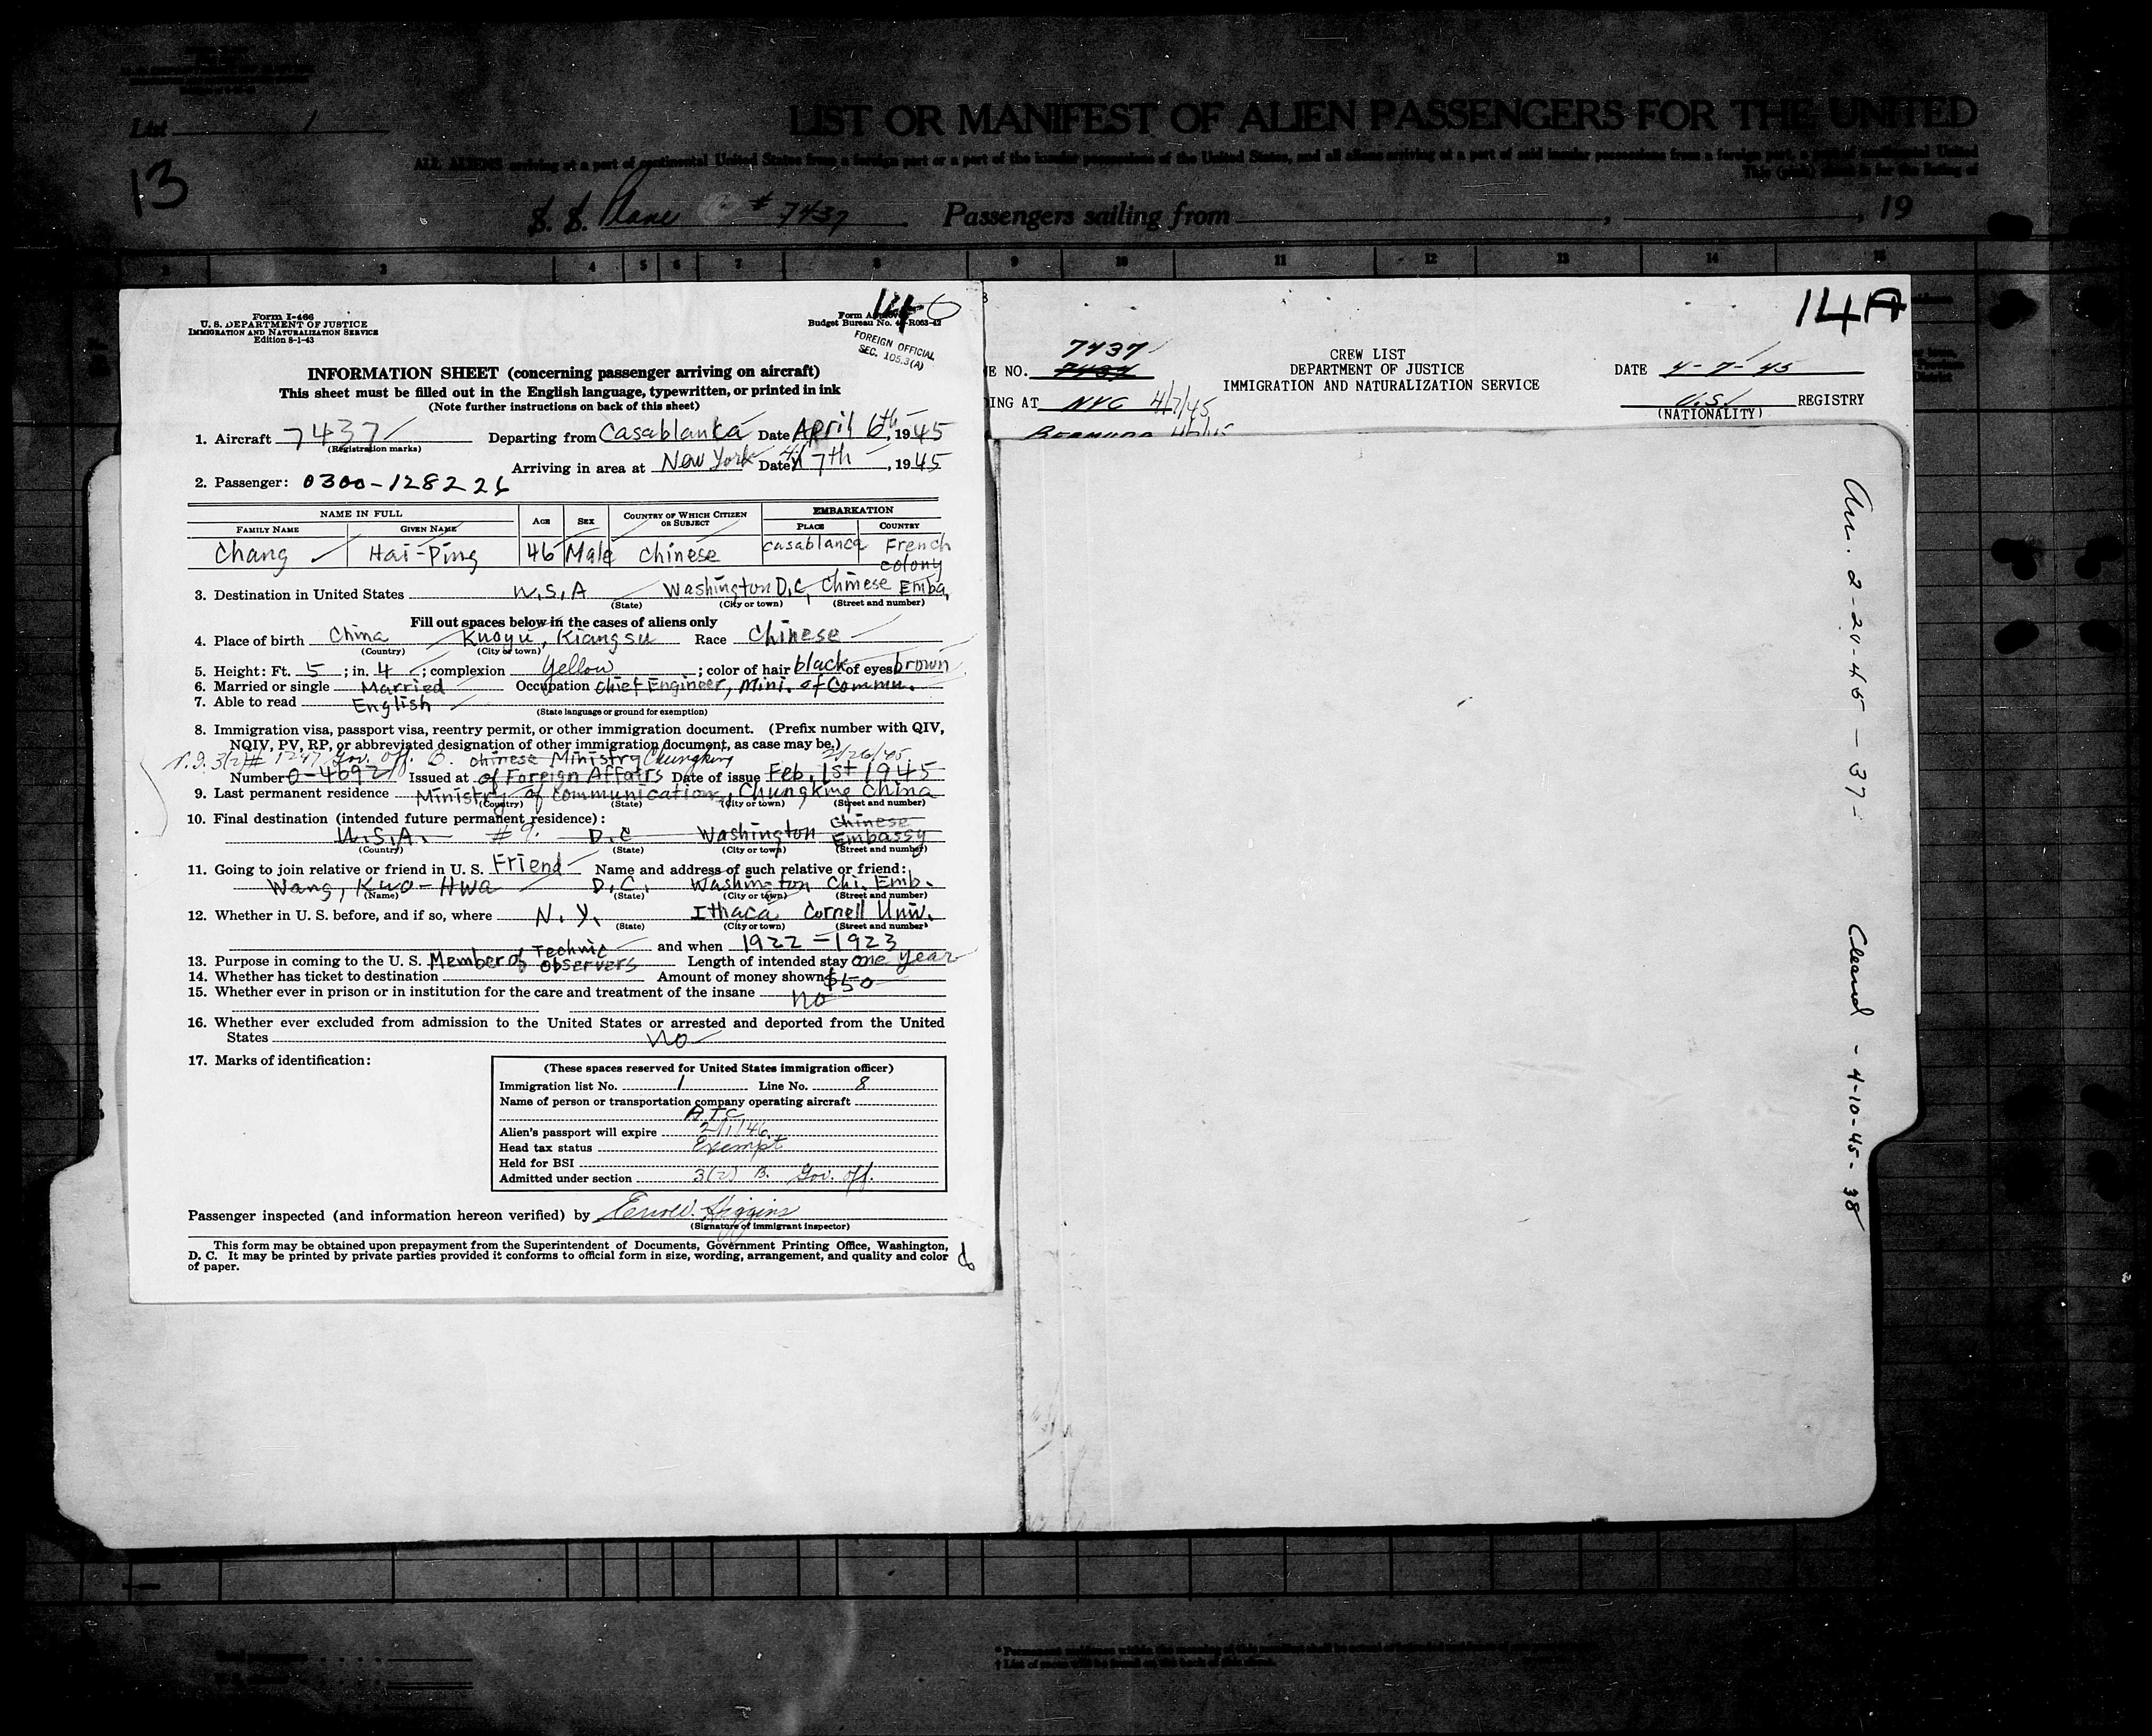 List 1
LIST OR MANIFEST OF ALIEN PASSENGERS FOR THE UNITED
13
ALL ALIENS arriving at a port of continental United States from a foreign port or a port of the insular possessions of the United States, and all aliens arriving at a port of said insular possessions from a foreign port, a port of continental United
S. S. Plane # 7437 Passengers sailing from , , 19
2 3 4 5 6 7 8 9 10 11 12 13 14 15
Form I-466
U. S. DEPARTMENT OF JUSTICE
IMMIGRATION AND NATURALIZATION SERVICE
Edition 8-1-43
Form Approved
Budget Bureau No. 43-R063-42
FOREIGN OFFICIAL
SEC. 105.3(A)
INFORMATION SHEET (concerning passenger arriving on aircraft)
This sheet must be filled out in the English language, typewritten, or printed in ink
(Note further instructions on back of this sheet)
1. Aircraft 7437 Departing from Casablanka Date April 6th, 1945
(Registration marks)
Arriving in area at New York Date 7th, 1945
2. Passenger: 0300-128226
NAME IN FULL AGE SEX COUNTRY OF WHICH CITIZEN OR SUBJECT EMBARKATION
FAMILY NAME GIVEN NAME PLACE COUNTRY
Chang Hai-Ping 46 Male Chinese Casablanca French colony
3. Destination in United States U.S.A Washington D.C, Chinese Emba,
(State) (City or town) (Street and number)
Fill out spaces below in the cases of aliens only
4. Place of birth China Kuoyu, Kiangsu Race Chinese
(Country) (City or town)
5. Height: Ft. 5; in. 4; complexion Yellow; color of hair black of eyes brown
6. Married or single Married Occupation Chief Engineer, Mini. of Commu.
7. Able to read English
(State language or ground for exemption)
8. Immigration visa, passport visa, reentry permit, or other immigration document. (Prefix number with QIV,
NQIV, PV, RP, or abbreviated designation of other immigration document, as case may be.)
3(2) # 1247 Gov. Off. Chinese Ministry Chungking 2/26/45
Number 0-4692 Issued at of Foreign Affairs Date of issue Feb, 1st 1945
9. Last permanent residence Ministry of Communications, Chungking China
(Country) (State) (City or town) (Street and number)
10. Final destination (intended future permanent residence):
U.S.A. #9. D.C Washington Chinese Embassy
(Country) (State) (City or town) (Street and number)
11. Going to join relative or friend in U. S. Friend Name and address of such relative or friend:
Wang, Kuo-Hwa D.C. Washington Chi. Emb.
(Name) (State) (City or town) (Street and number)
12. Whether in U. S. before, and if so, where N.Y. Ithaca Cornell Univ.
(State) (City or town) (Street and number)
and when 1922 - 1923
13. Purpose in coming to the U. S. Member of Technic Observers Length of intended stay one year
14. Whether has ticket to destination Amount of money shown $50
15. Whether ever in prison or in institution for the care and treatment of the insane no
16. Whether ever excluded from admission to the United States or arrested and deported from the United
States No
17. Marks of identification:
(These spaces reserved for United States immigration officer)
Immigration list No. 1 Line No. 8
Name of person or transportation company operating aircraft
ATC
Alien's passport will expire 2/1/46
Head tax status Exempt
Held for BSI
Admitted under section 3(2) B. Gov. Off.
Passenger inspected (and information hereon verified) by Higgins
(Signature of immigrant inspector)
This form may be obtained upon prepayment from the Superintendent of Documents, Government Printing Office, Washington,
D. C. It may be printed by private parties provided it conforms to official form in size, wording, arrangement, and quality and color
of paper.
14A
7437
CREW LIST
E NO. 7437 DEPARTMENT OF JUSTICE DATE 4-7-45
IMMIGRATION AND NATURALIZATION SERVICE
ING AT NYC 4/7/45 U.S. REGISTRY
(NATIONALITY)
BERMUDA 4/7/45
Arr. 2-24-45 - 37 - Cleared - 4-10-45 - 38